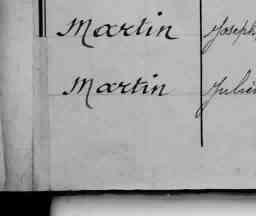 Martin Joseph
Martin Julien